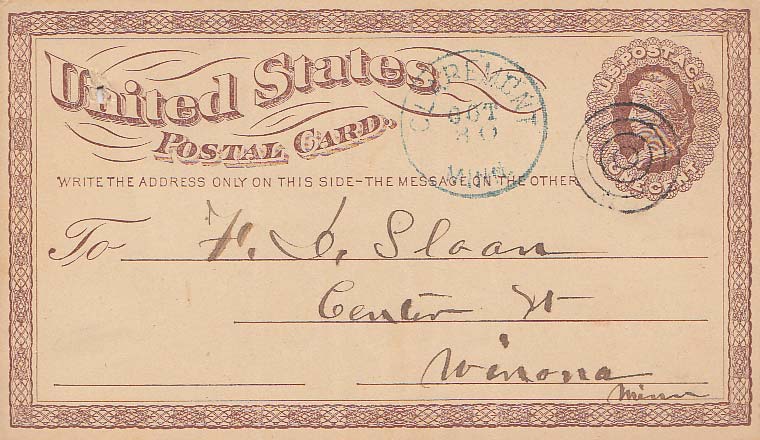 United States
POSTAL CARD.
U.S. POSTAGE
ONE CENT
CLAREMENT
OCT
30
MINN.
WRITE THE ADDRESS ONLY ON THIS SIDE–THE MESSAGE ON THE OTHER
To F. D. Sloan
Center St
Winona
Minn